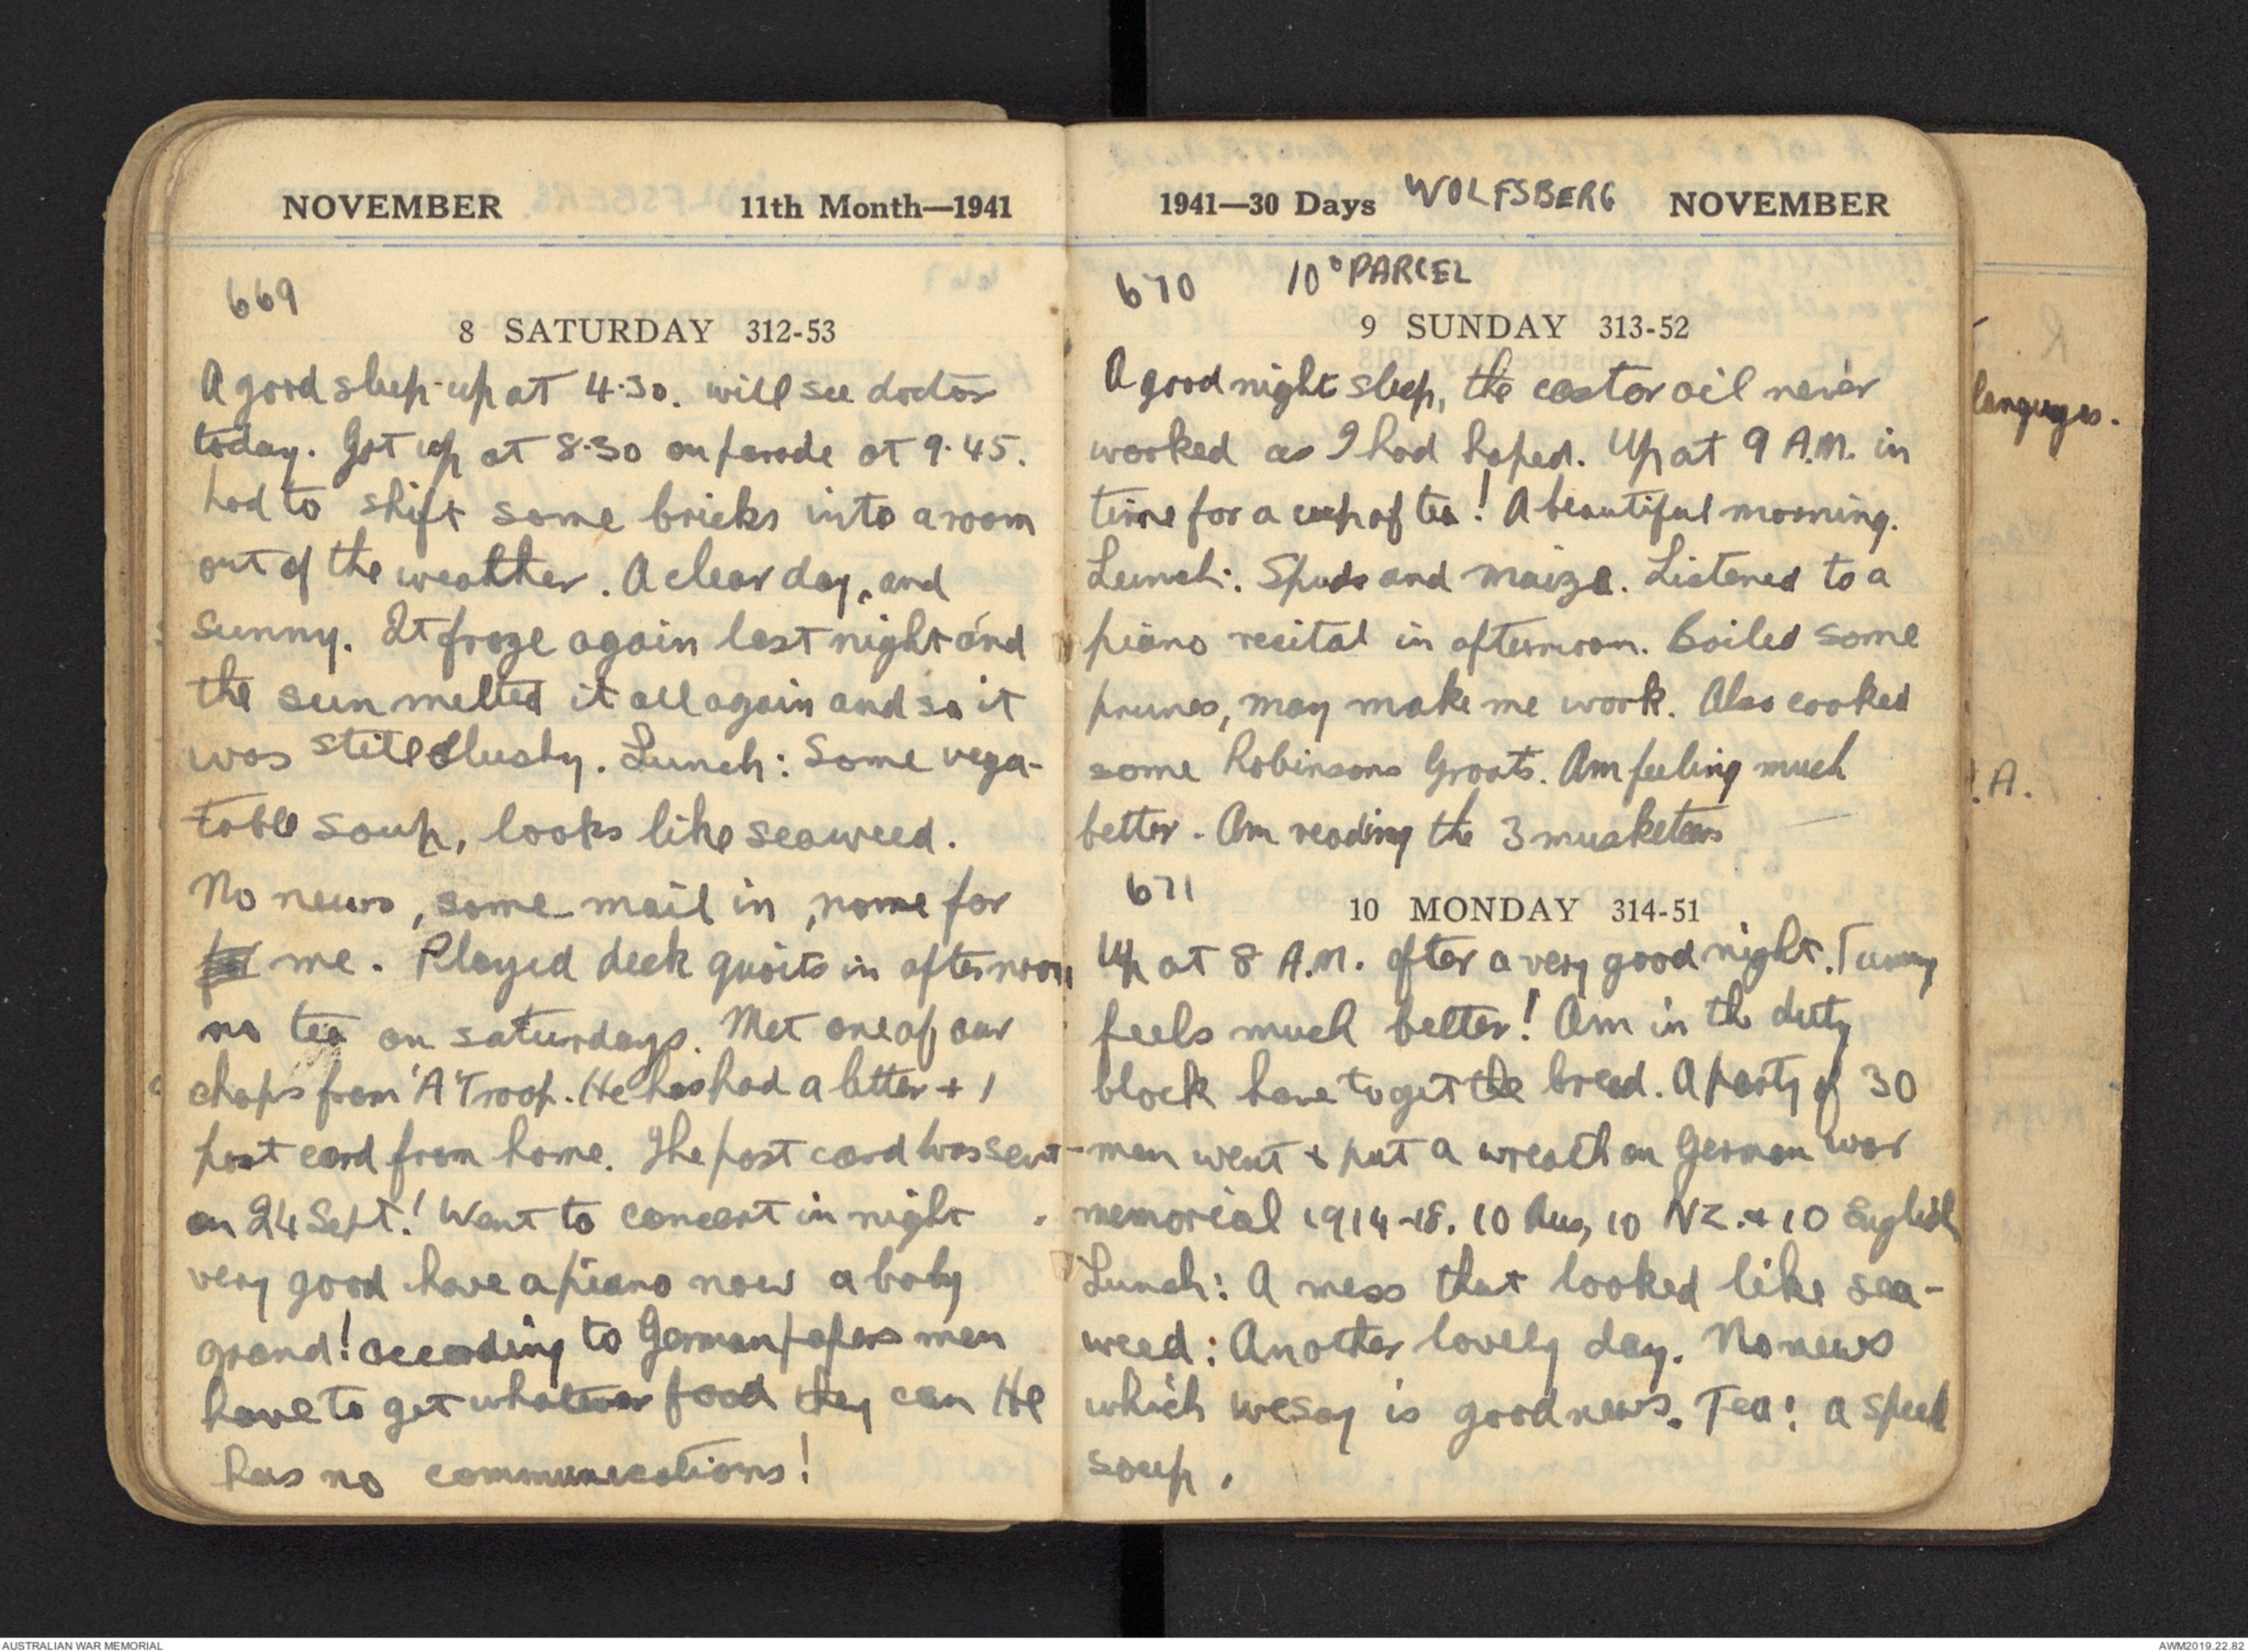 NOVEMBER 11th Month—1941
669
8 SATURDAY 312-53
A good sleep up at 4.30. will see doctor
today. Got up at 8.30 on parade at 9.45.
had to shift some bricks into a room
out of the weather. A clear day, and
sunny. It froze again last night and
the sun melted it all again and so it
was still slushy. Lunch: Some vega-
table soup, looks like seaweed.
No news, some mail in, none for
me. Played deck quoits in afternoon
no tea on saturdays. Met one of our
chaps from 'A' Troop. He has had a letter + 1
post card from home. The post card was sent
on 24 Sept.! Went to concert in night
very good have a piano now a baby
grand! according to German papers men
have to get whatever food they can He
has no communications!
1941—30 Days WOLFSBERG NOVEMBER
670 10° PARCEL
9 SUNDAY 313-52
A good night sleep, the castor oil never
worked as I had hoped. Up at 9 A.M. in
time for a cup of tea! A beautiful morning.
Lunch: Spuds and maize. Listened to a
piano recital in afternoon. Boiled some
prunes, may make me work. Also cooked
some Robinsons Groats. Am feeling much
better. Am reading the 3 musketeers
671
10 MONDAY 314-51
Up at 8 A.M. after a very good night. Tummy
feels much better! Am in the duty
block have to get the bread. A party of 30
men went & put a wreath on German war
memorial 1914-18. 10 Aus, 10 NZ. & 10 English
Lunch: A mess that looked like sea-
weed: Another lovely day. No news
which we say is good news. Tea: a speck
soup.
languages.
.A.
AUSTRALIAN WAR MEMORIAL
AWM2019.22.82